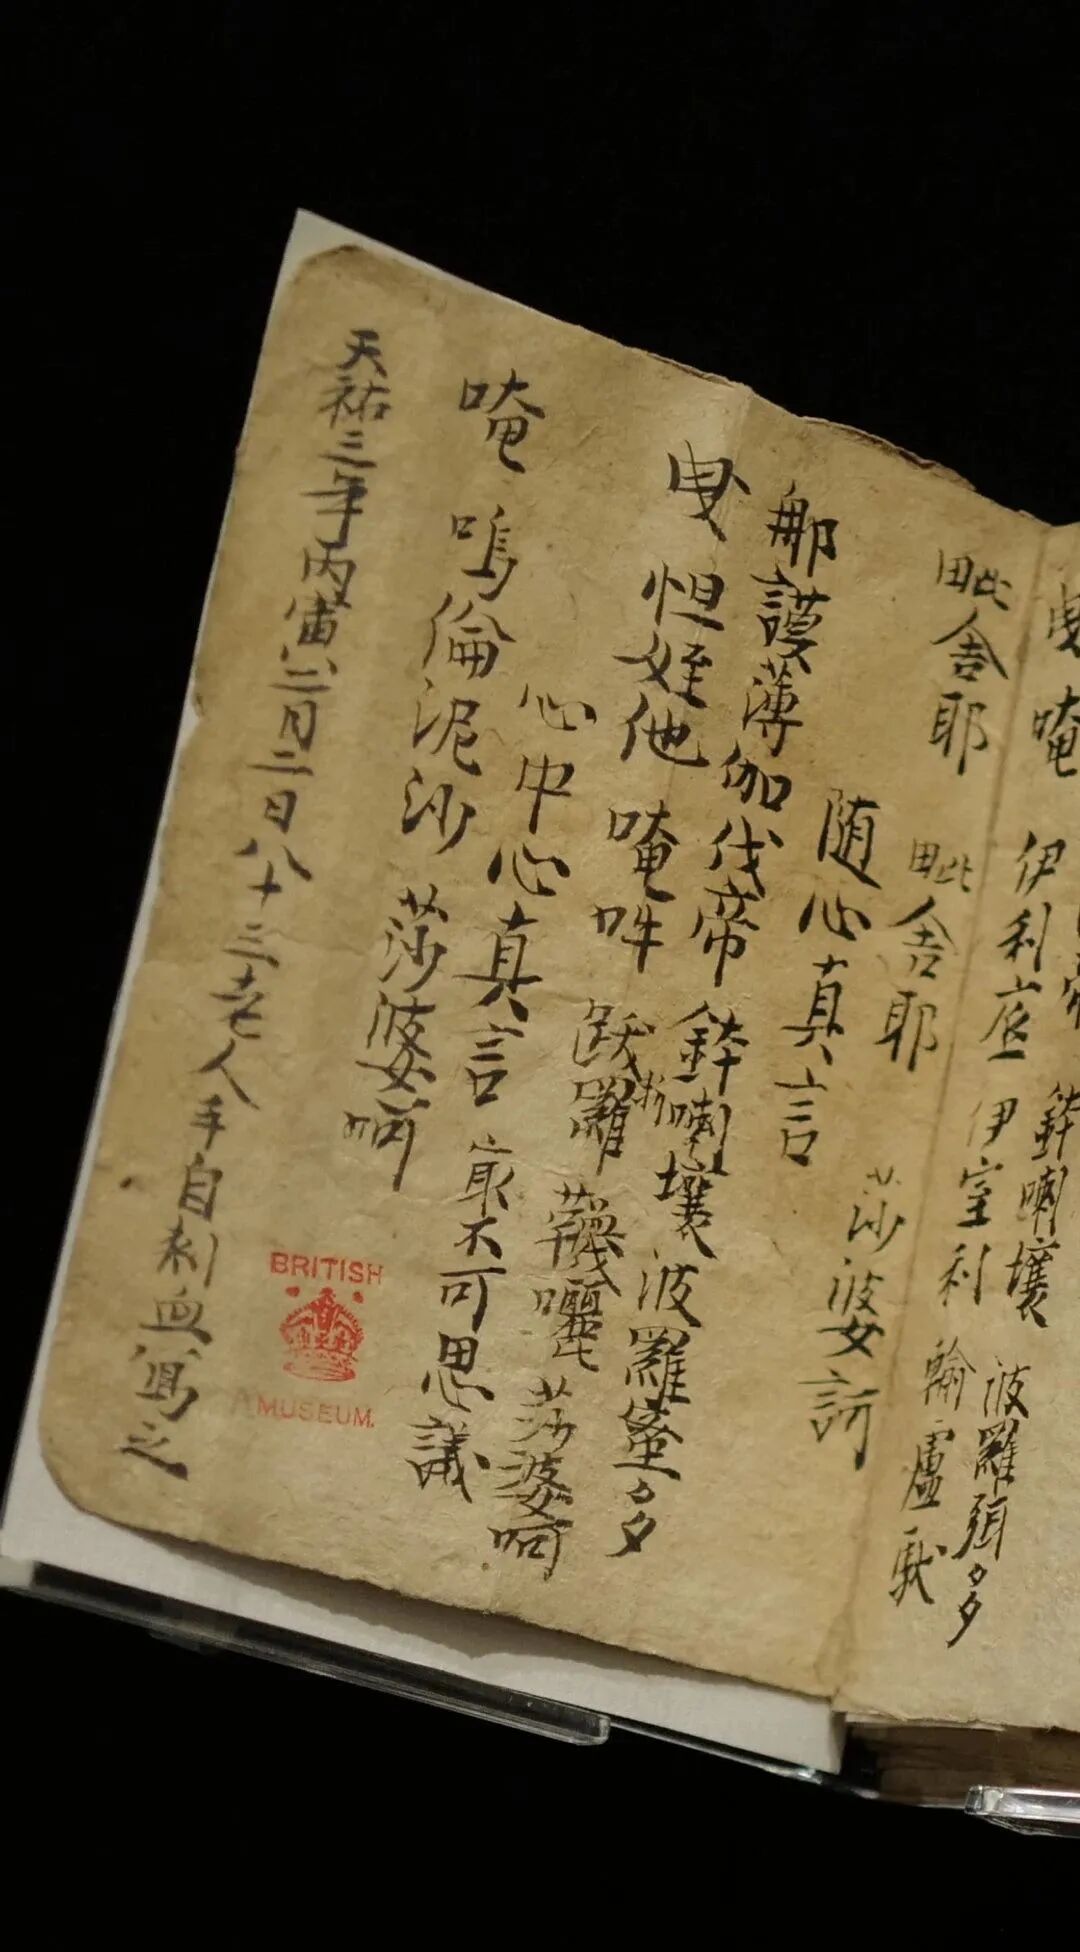 帝 鉢喇壤 波羅弭多
曳 唵 伊利底 伊室利 輸盧馱
毗舍耶 毗舍耶 莎婆訶
随心真言
那謨薄伽伐帝 鉢喇壤 波羅蜜多
曳 怛姪他 唵吽 跋折羅 莎婆呵
心中心真言 冣不可思議
唵 嗚倫泥沙 莎婆呵
天祐三年丙寅二月二日八十三老人手自刺血寫之
BRITISH
MUSEUM